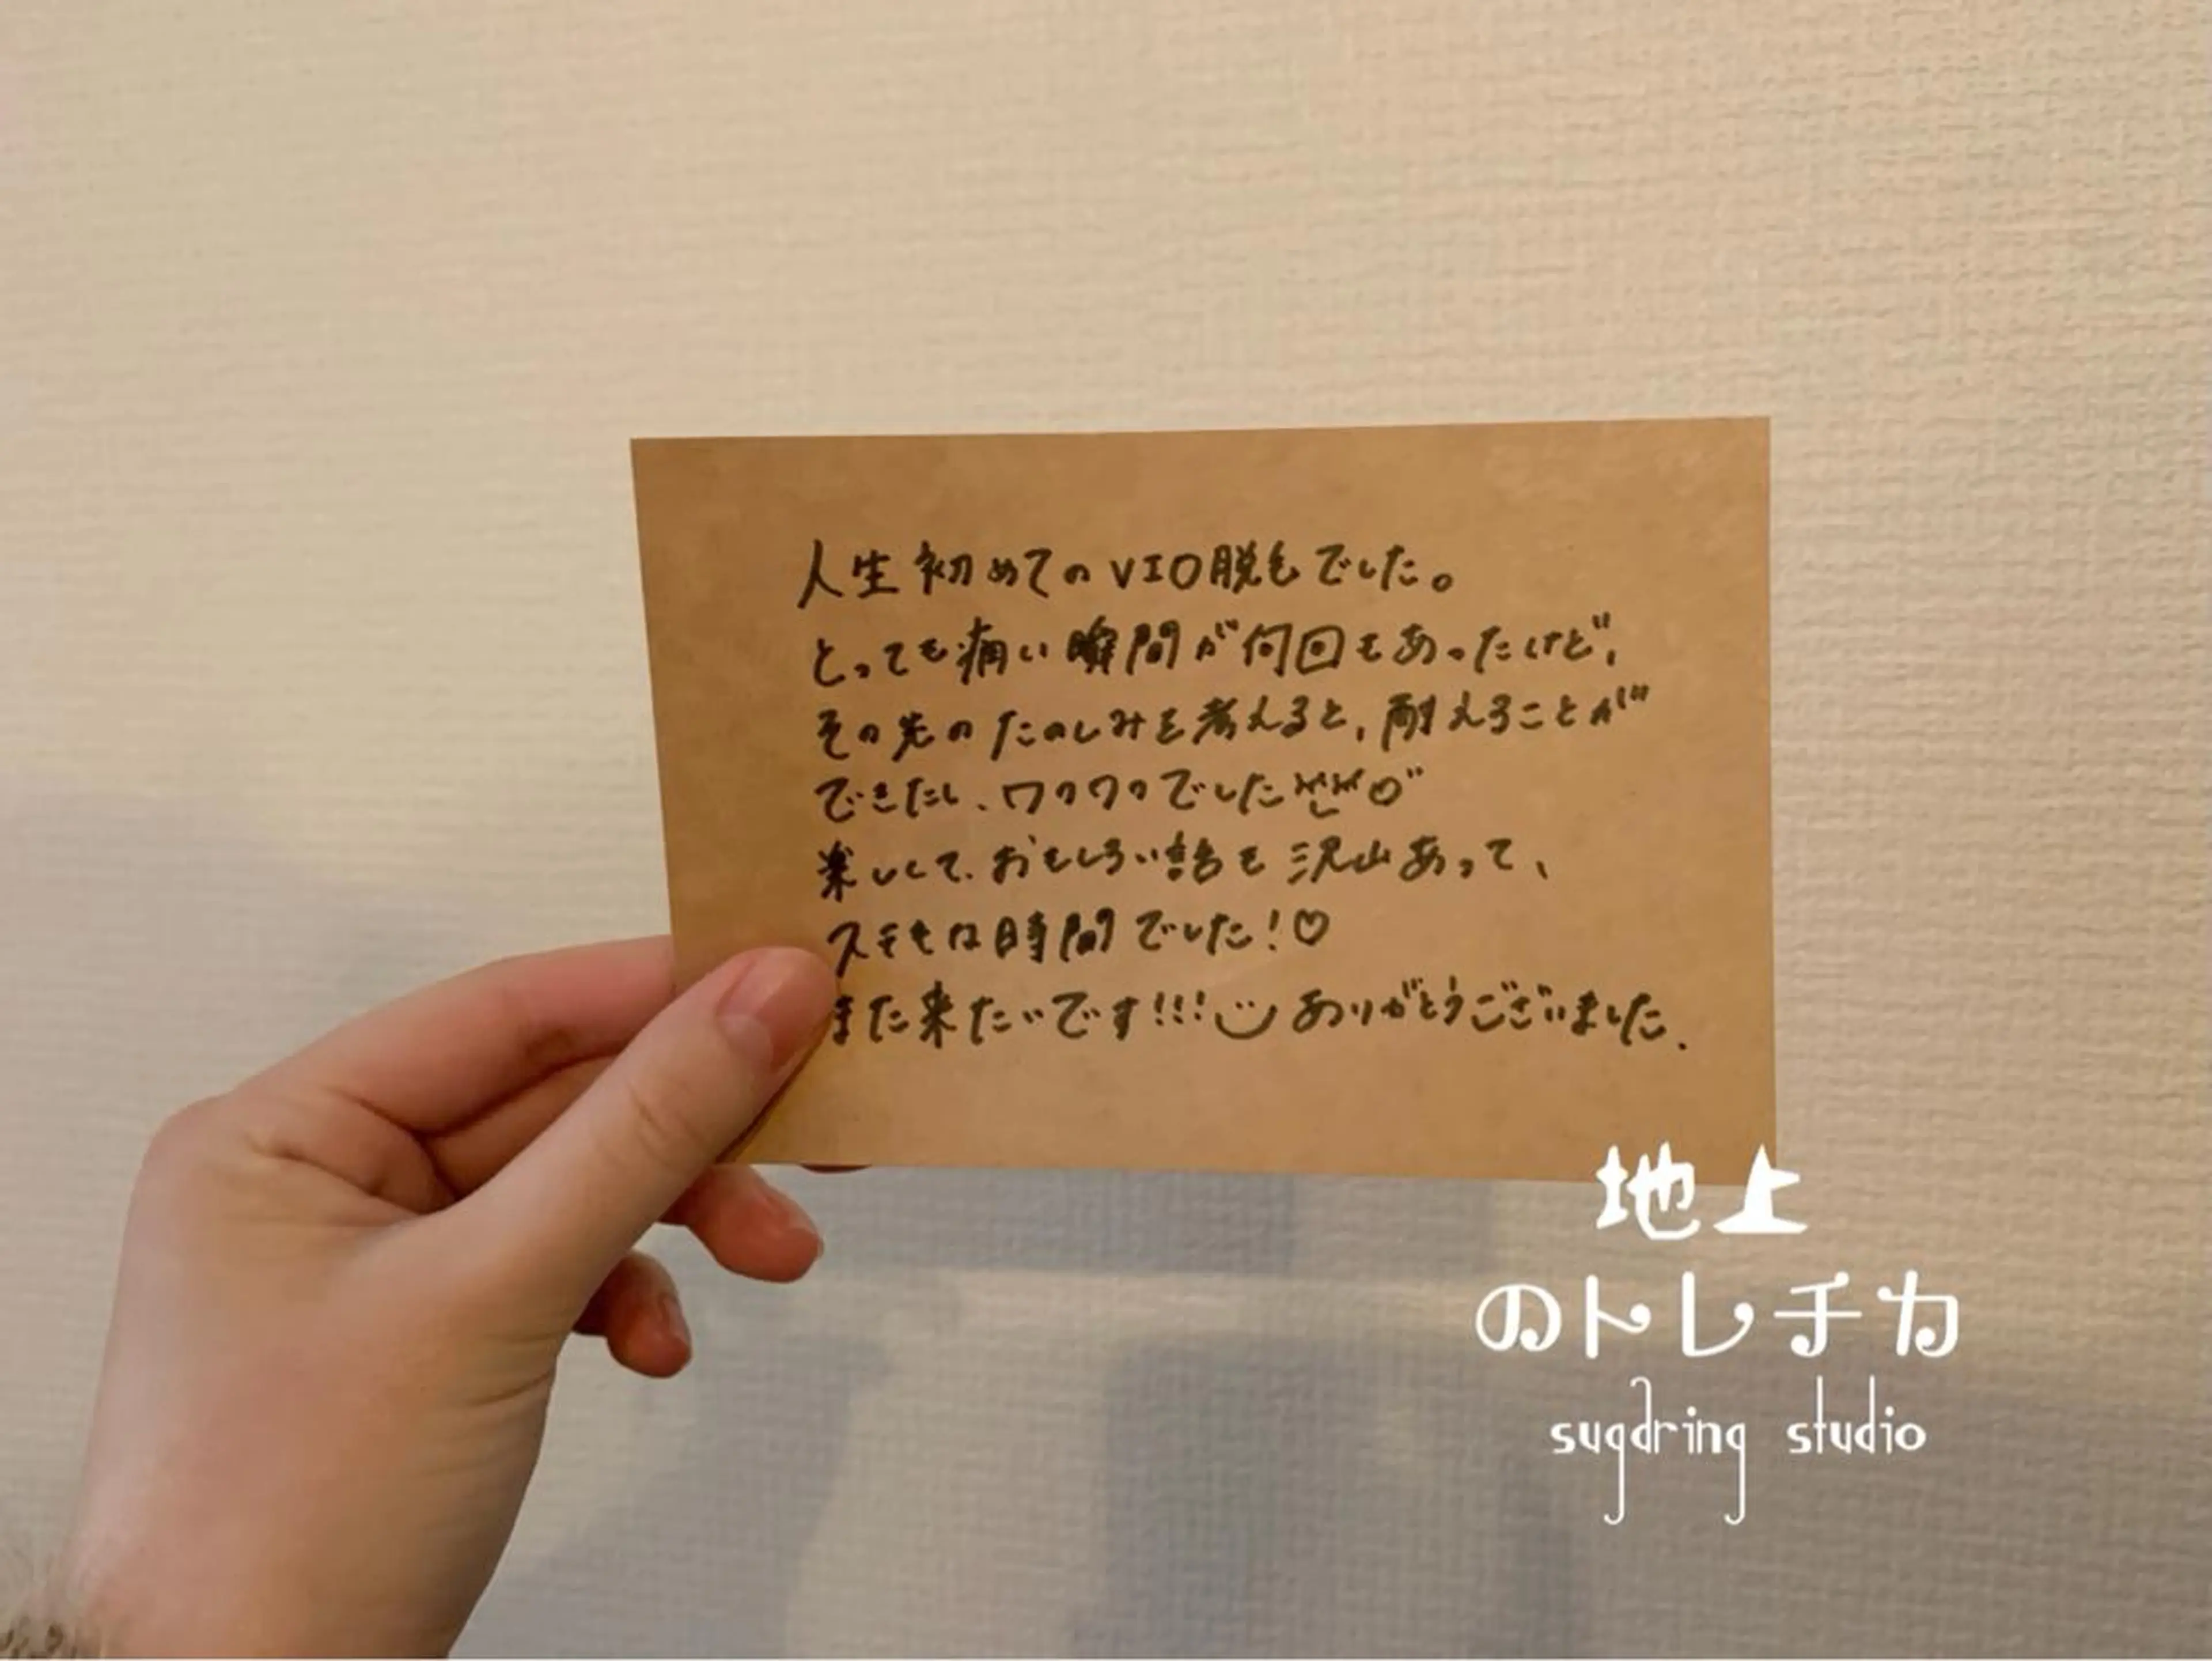 人生初めてのVIO脱毛でした。
とっても痛い瞬間が何回もあったけど、
その先のたのしみを考えると、耐えることが
できたし、ワクワクでした♡
楽しくて、おもしろい話も沢山あって、
ステキな時間でした!♡
また来たいです!!! ありがとうございました.
地上
のトレチカ
sugaring studio